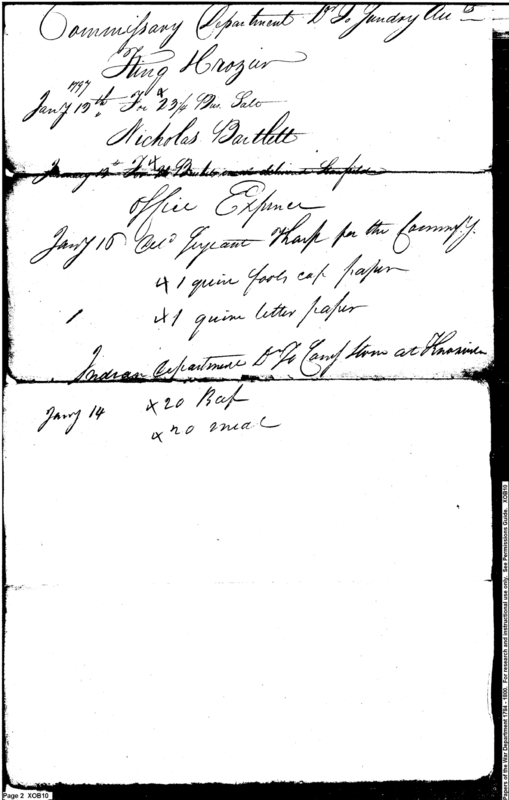 Commissary Department Dr. To Sundry Acc.ts
King & Crozier
1797
Jany 12th. For 23/4 Bus. Salt
Nicholas Bartlett
January 12th For
Office Expence
Jany 16 Del'd Serjeant Tharp for the Commss'y.
x 1 quire fools cap paper
x 1 quire letter paper
Indian Department Dr To Camp Store at Knoxville
Jany 14 x 20 Beef
x 20 meal
Page 2 XOB10
Papers of the War Department 1784 - 1800. For research and instructional use only. See Permissions Guide. XOB10